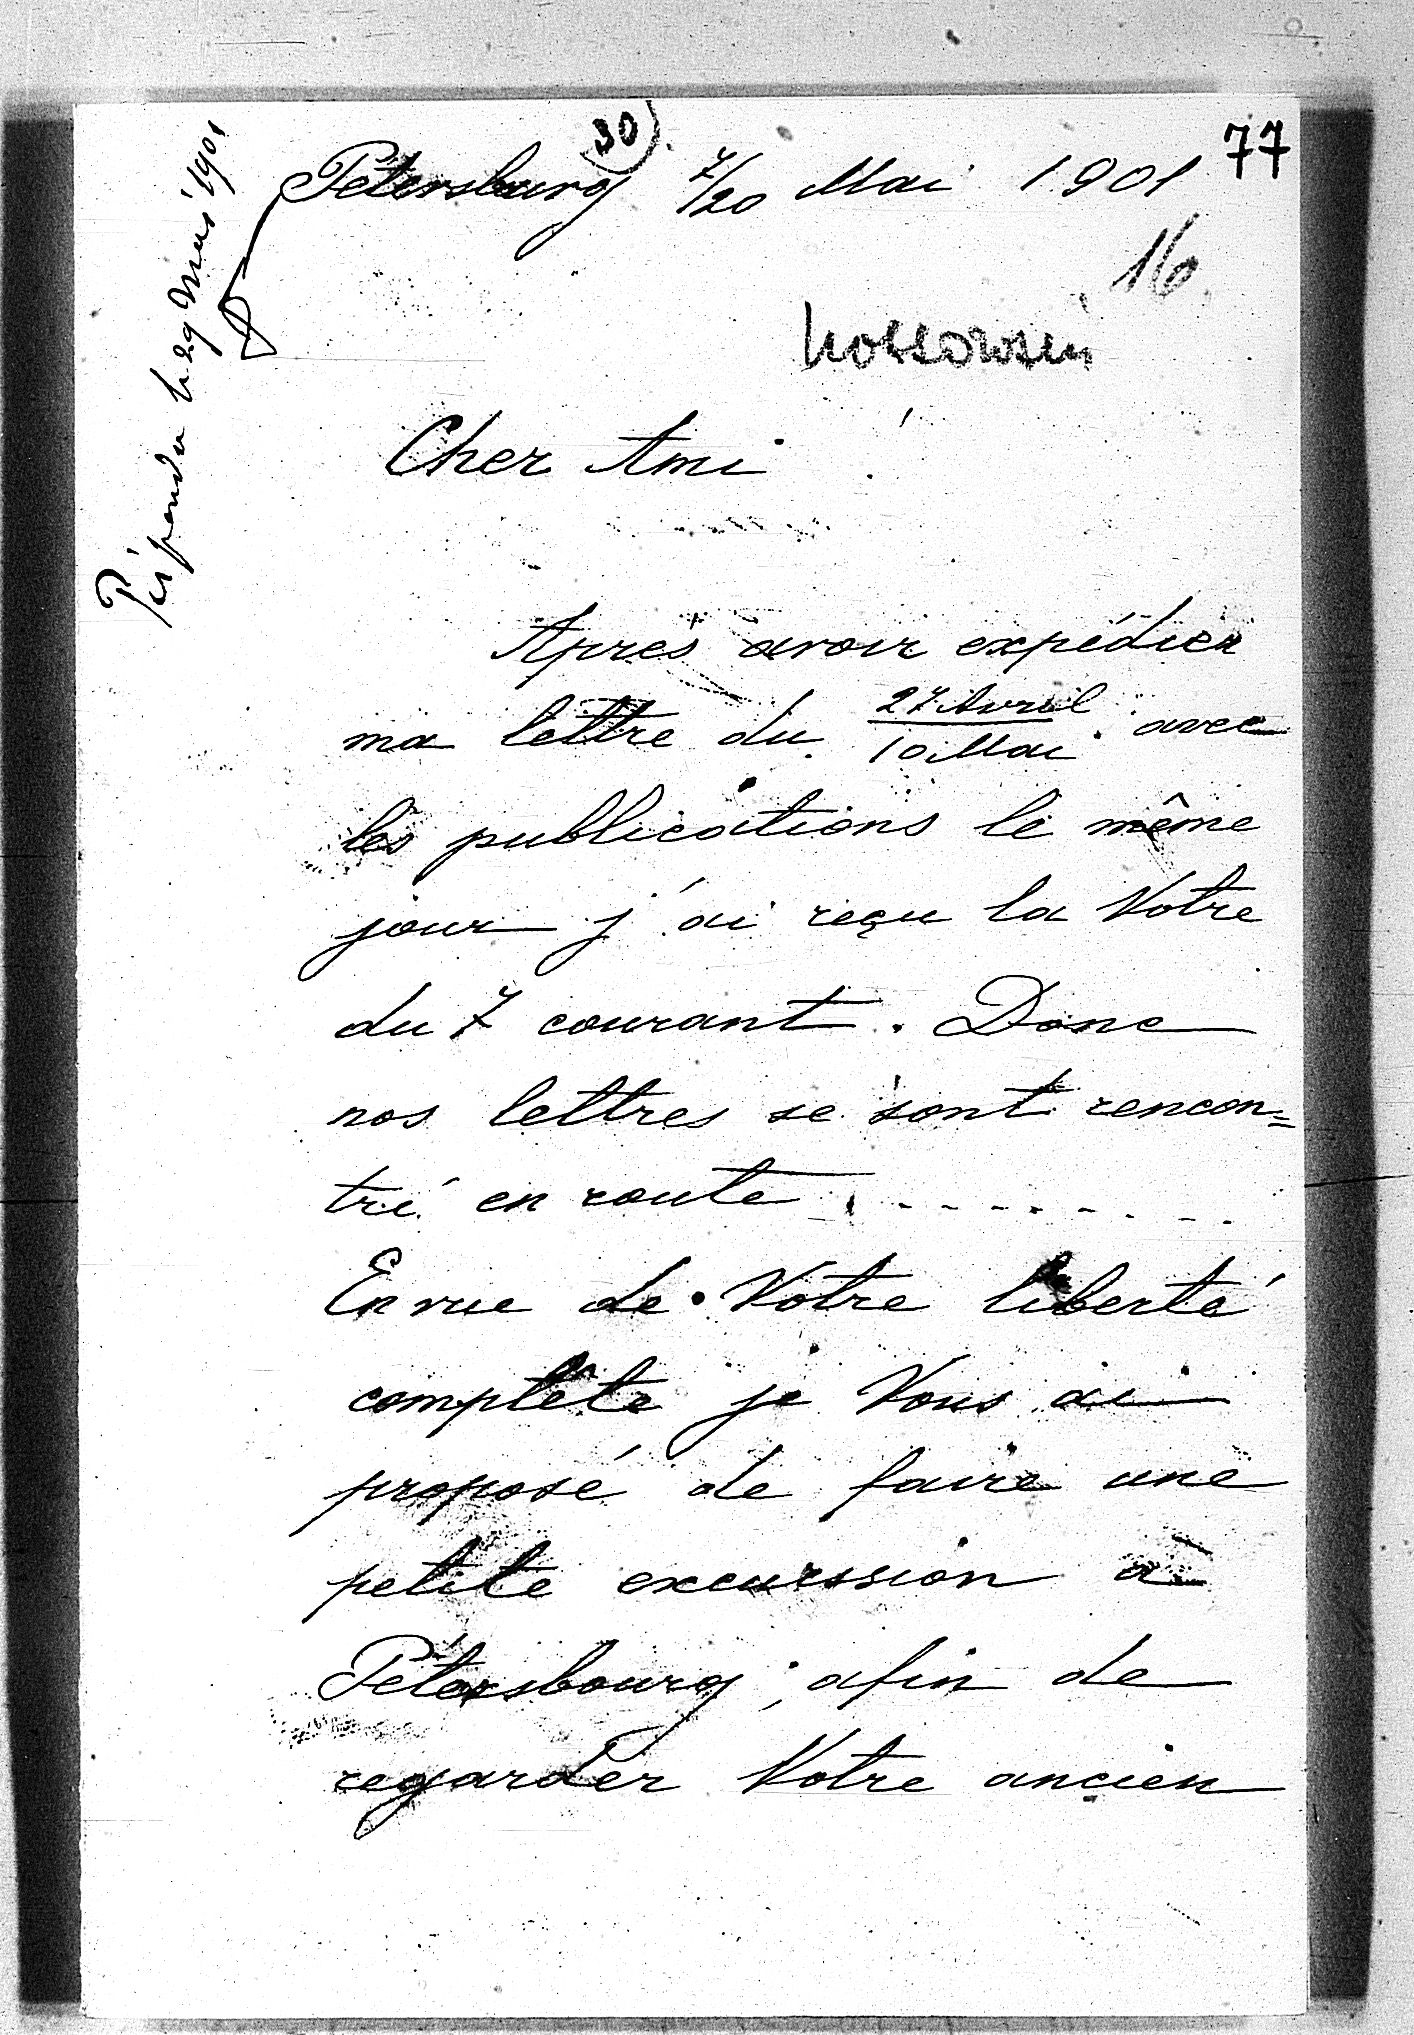 30
77
Pétersburg 7/20 Mai 1901
16
Kossowski
Répondu le 29 Mai 1901
Cher Ami
Après avoir expédier
ma lettre du 27 Avril / 10 Mai avec
les publications le même
jour j'ai reçu la Votre
du 7 courant. Donc
nos lettres se sont rencon=
tré en route . - - - - - - - -
En vue de Votre liberté
complète je Vous ai
proposé de faire une
petite excurssion à
Pétersbourg, afin de
regarder Votre ancien